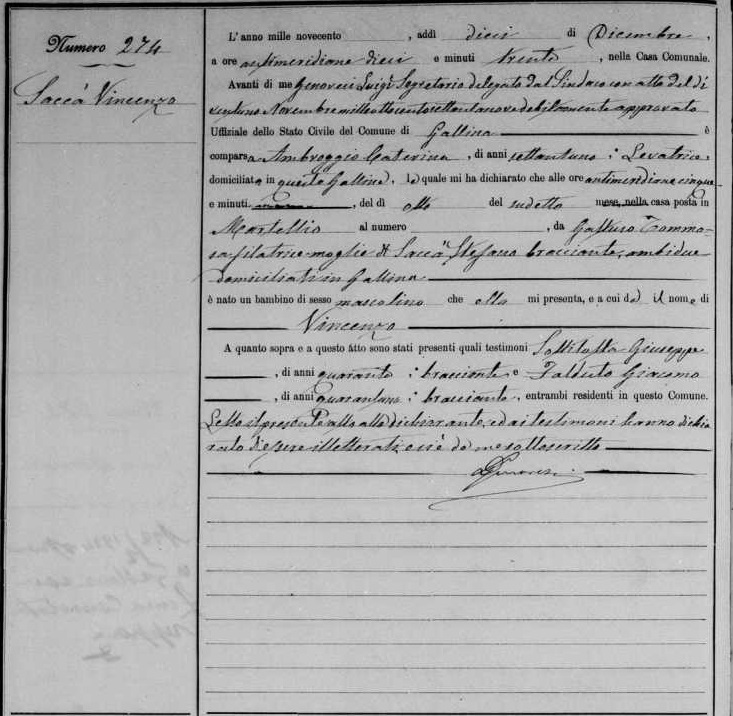 Numero 274
Saccà Vincenzo
L'anno mille novecento , addì dieci di Dicembre ,
a ore antimeridiane dieci e minuti trenta , nella Casa Comunale.
Avanti di me Genovesi Luigi Segretario delegato dal Sindaco con atto del di
ventuno Novembre mille ottocento settantanove debitamente approvato
Uffiziale dello Stato Civile del Comune di Gallina è
comparsa Ambroggio Caterina , di anni settantuno ; Levatrice
domiciliata in questa Gallina , la quale mi ha dichiarato che alle ore antimeridiane cinque
e minuti , del dì otto del sudetto mese, nella casa posta in
Mortellio al numero , da Gattuso Tomma-
sa filatrice moglie di Saccà Stefano bracciante, ambidue
domiciliati in Gallina
è nato un bambino di sesso mascolino che ella mi presenta, e a cui dà il nome di
Vincenzo
A quanto sopra e a questo atto sono stati presenti quali testimoni Giuseppe
, di anni quaranta ; bracciante e Falduto Giacomo
, di anni quarantuno ; bracciante , entrambi residenti in questo Comune.
Letto il presente atto alla dichiarante, ed ai testimoni hanno dichia
rato d'essere illetterati e si è da me sottoscritto
LGenovesi